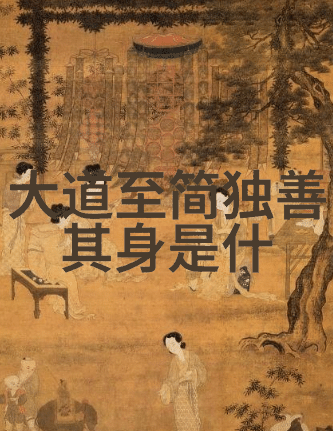 大道至简独善
其身是什